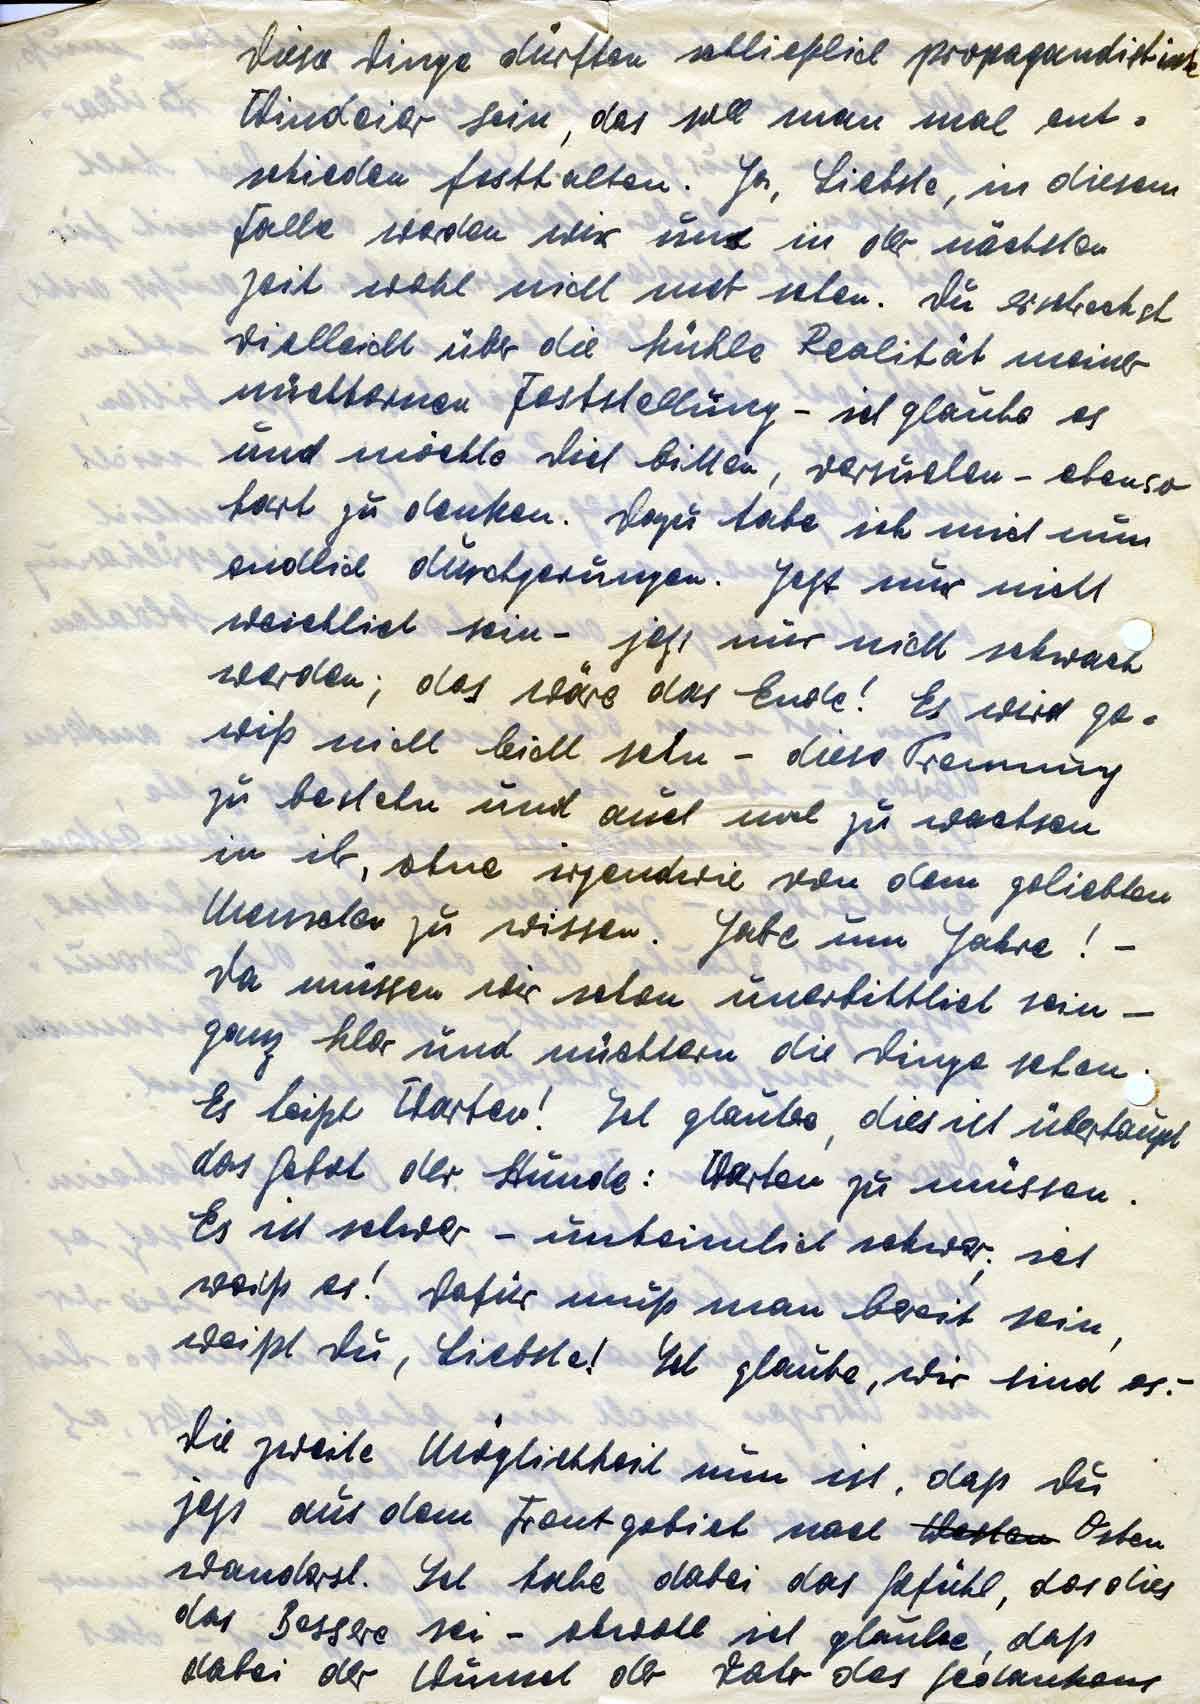 Diese Dinge dürften schließlich propagandistische
Windeier sein, das soll man mal ent-
schieden festhalten. Ja, Liebste, in diesem
Falle werden wir uns in der nächsten
Zeit wohl nicht mehr sehen. Du erschrickst
vielleicht über die kühle Realität meiner
nüchternen Feststellung - ich glaube es
und möchte Dich bitten, versuchen - ebenso
hart zu denken. Dazu habe ich mich nun
endlich durchgerungen. Jetzt nur nicht
weichlich sein - jetzt nur nicht schwach
werden; das wäre das Ende! Es wird ge-
wiß nicht leicht sein - diese Trennung
zu bestehn und auch noch zu wachsen
in ihr, ohne irgendwie von dem geliebten
Menschen zu wissen. Jahre um Jahre! -
Da müssen wir schon unerbittlich sein -
ganz klar und nüchtern die Dinge sehen.
Es heißt Warten! Ich glaube, dies ist überhaupt
das Gebot der Stunde: Warten zu müssen.
Es ist schwer - unheimlich schwer; ich
weiß es! Dafür muß man bereit sein,
weißt Du, Liebste! Ich glaube, wir sind es. -
Die zweite Möglichkeit nun ist, daß Du
jetzt aus dem Frontgebiet nach Westen Osten
wanderst. Ich habe dabei das Gefühl, das dies
das Bessere sei - obwohl ich glaube, daß
dabei der Wunsch der Vater des Gedankens